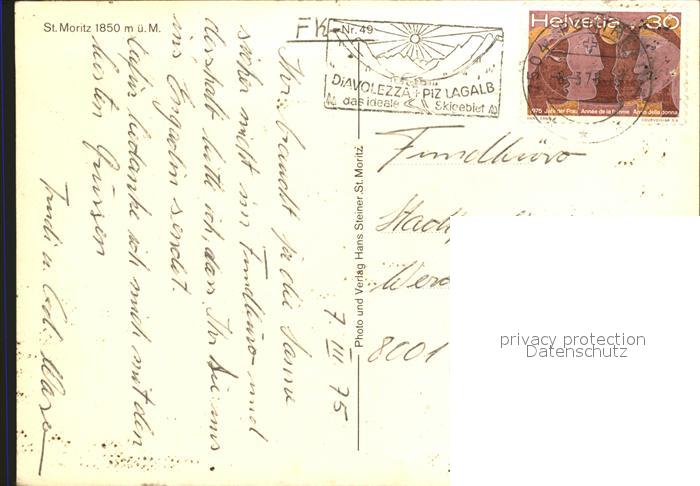 St. Moritz 1850 m ü. M.
FK - Nr. 49
DIAVOLEZZA + PIZ LAGALB
das ideale Skigebiet
Helvetia 30
1975 Jahr der Frau Année de la femme Anno della donna
Photo und Verlag Hans Steiner, St. Moritz
7. III. 75
Ihr braucht ja die Sonne
sicher nicht im Fundbüro und
deshalb bitte ich, dass Ihr sie uns
ins Engadin sendet.
Dafür bedanke ich mich mit den
besten Grüssen
Trudi u.
Fundbüro
8001
privacy protection
Datenschutz